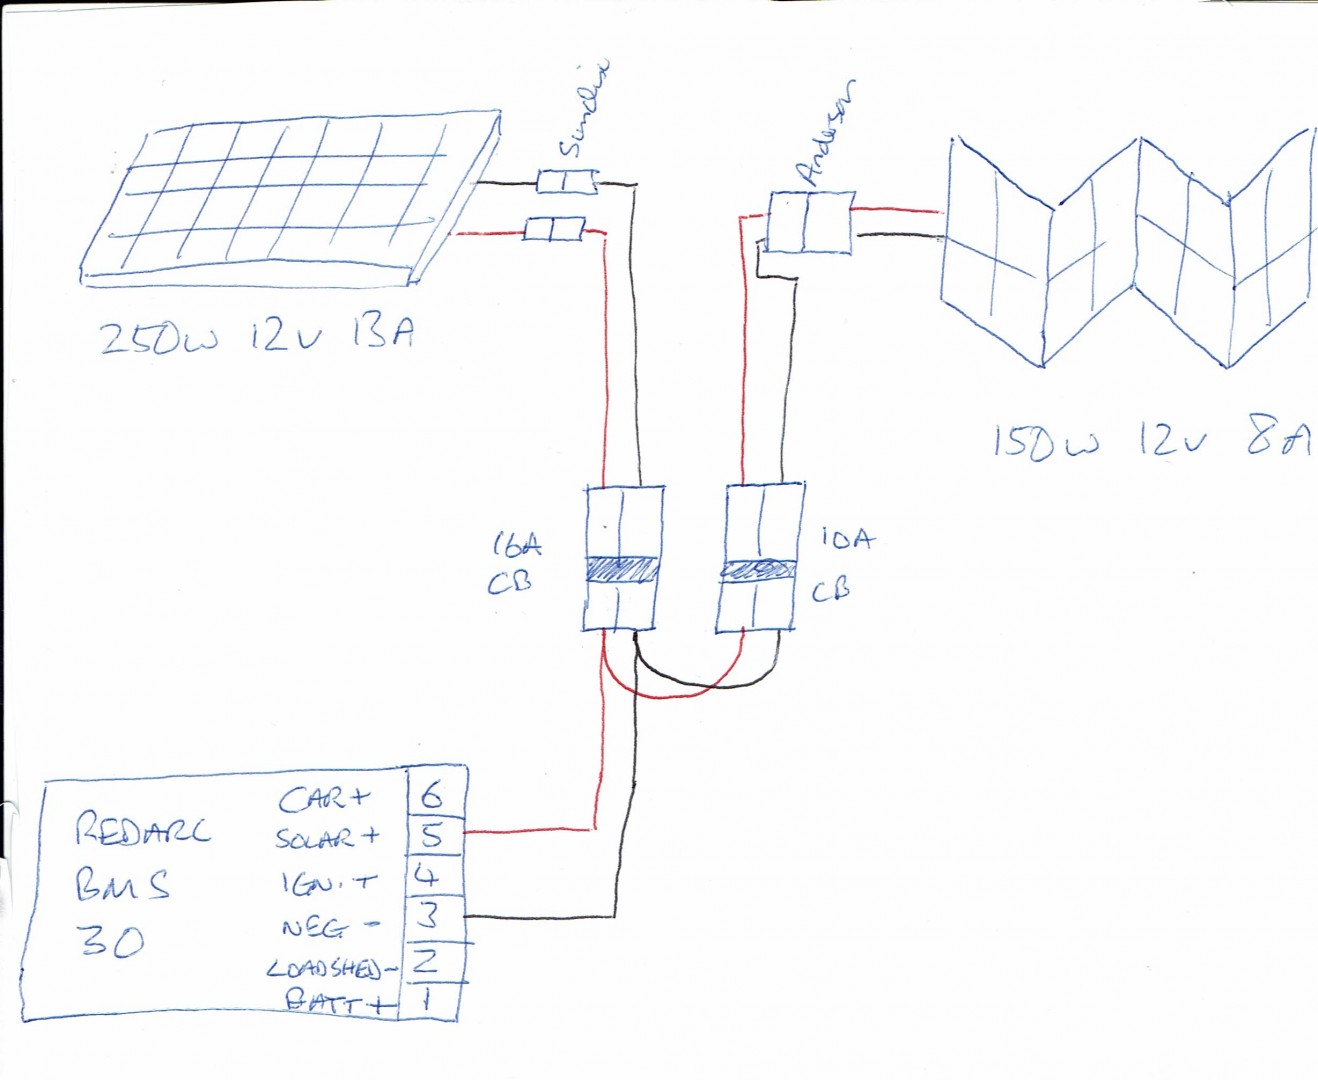 Sunclix
Anderson
250W 12V 13A
150W 12V 8A
16A
CB
10A
CB
REDARC
BMS
30
CAR+ 6
SOLAR+ 5
IGN.+ 4
NEG- 3
LOADSHED- 2
BATT+ 1